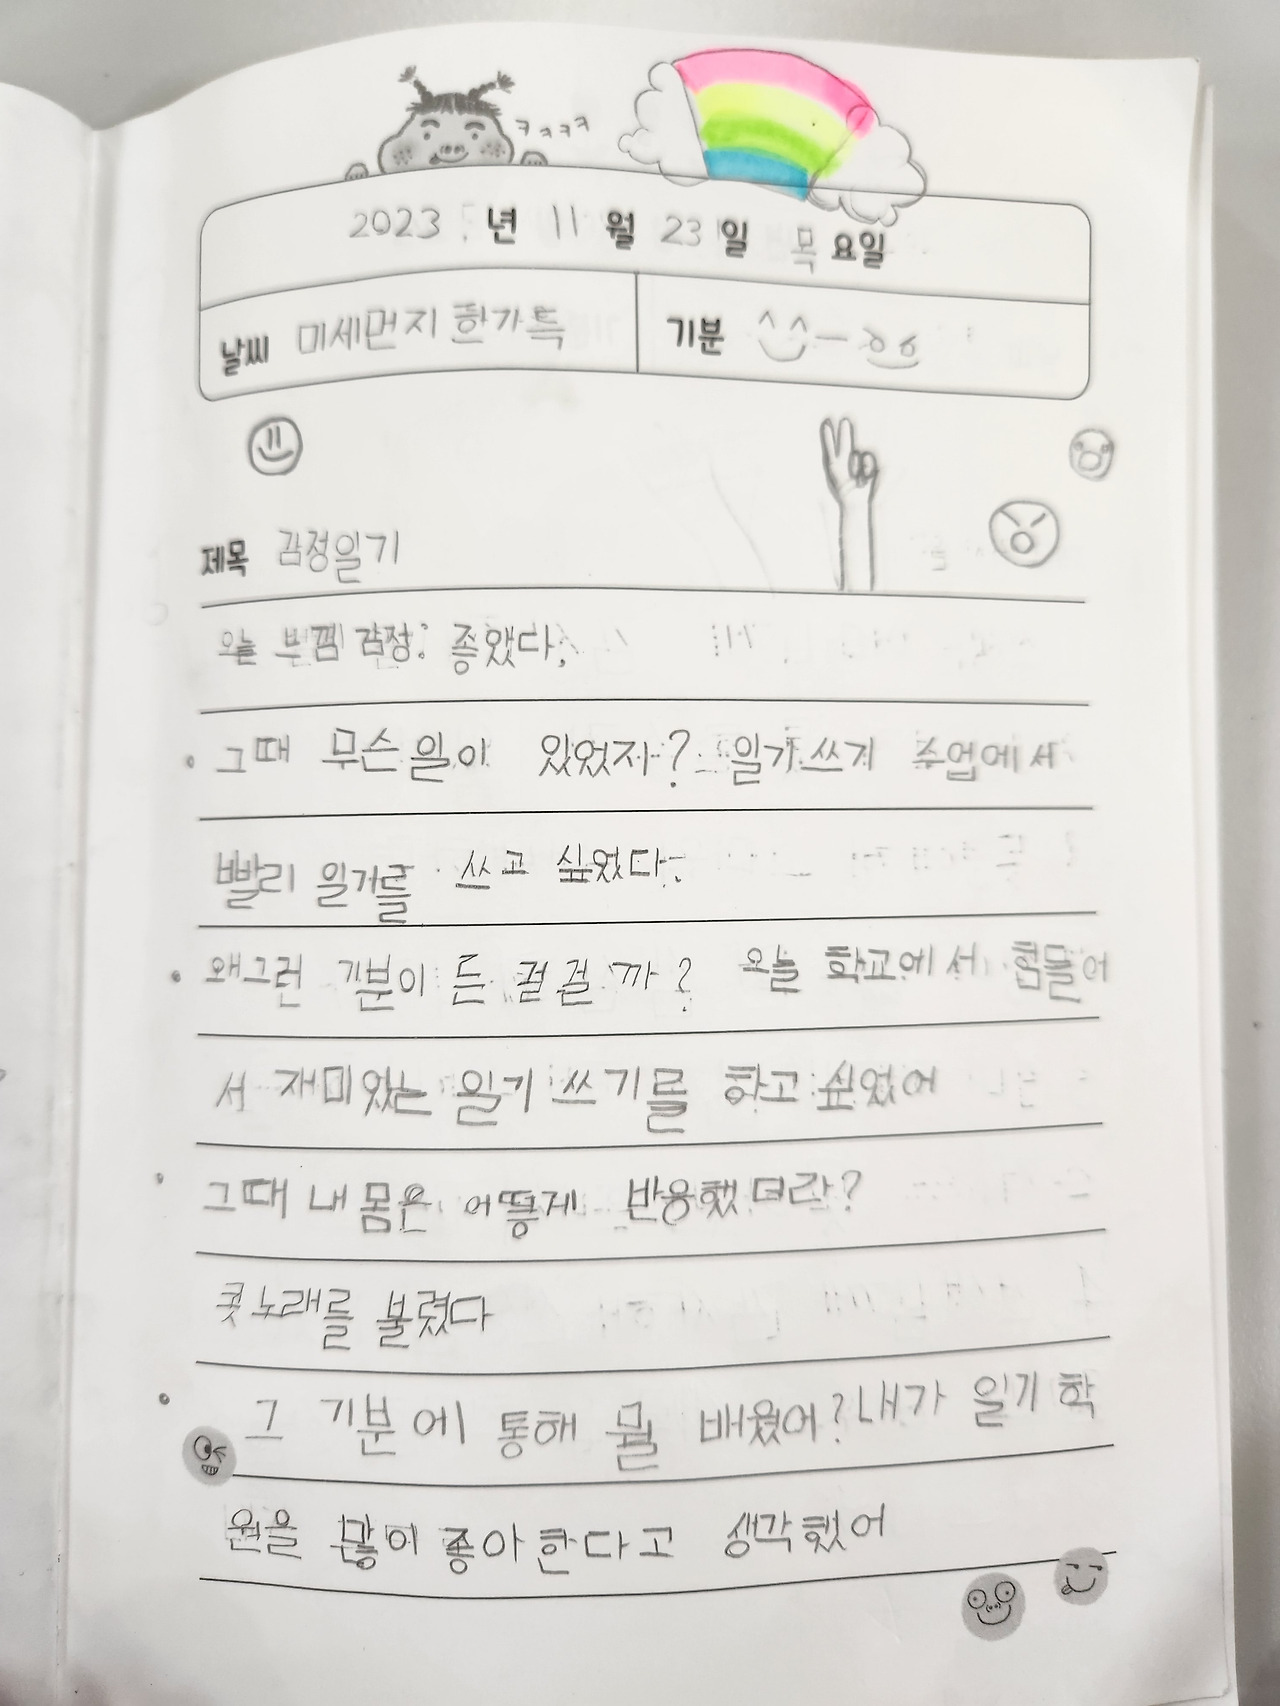 ㅋㅋㅋㅋ
2023 년 11 월 23 일 목 요일
날씨 미세먼지 한가득 기분
제목 감정일기
오늘 부낌 감정: 좋았다.
그때 무슨일이 있었지? 일기쓰기 수업에서
빨리 일기를 쓰고 싶었다.
왜그런 기분이 든 걸걸까? 오늘 학교에서 힘들어
서 재미있는 일기쓰기를 하고싶었어
그때 내몸은 어떻게 반응했더라?
콧노래를 불렀다
그 기분에 통해 뭘 배웠어? 내가 일기 학
원을 많이 좋아한다고 생각했어